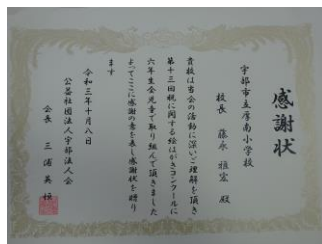 感謝状
宇部市立厚南小学校
校長 藤永 祖宏 殿
貴校は当会の活動に深いご理解を頂き
第十三回税に関する絵はがきコンクールに
六年生全児童で取り組んで頂きました
よってここに感謝の意を表し感謝状を贈り
ます
令和三年十月八日
公益社団法人宇部法人会
会長 三浦 英